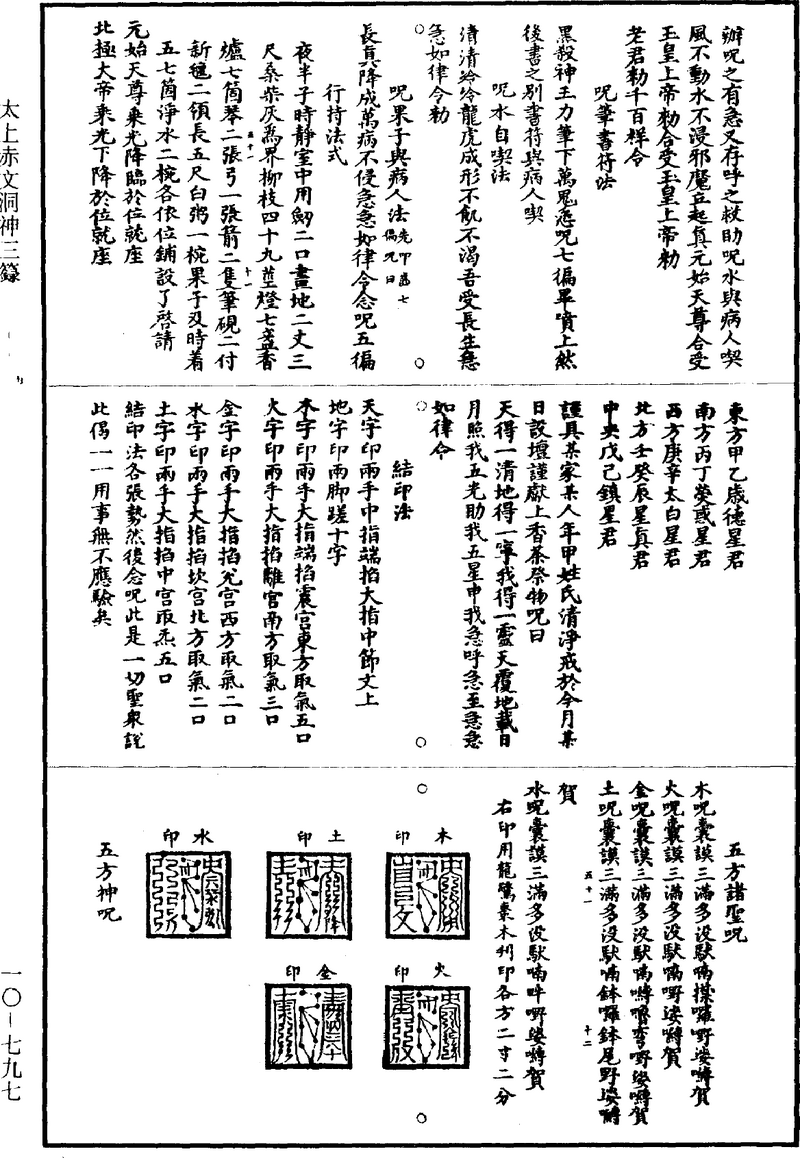 辦呪之有急又存呼之救助呪水與病人喫
風不動水不浸邪魔立起真元始天尊合受
玉皇上帝勑合受玉皇上帝勑
老君勑千百祥令
呪筆書符法
黑殺神王力筆下萬鬼愿呪七徧畢噴上然
後書之別書符與病人喫
呪水自喫法
清清泠泠龍虎成形不飢不渴吾受長生急
急如律令勑
呪果子與病人法
長真降成萬病不侵急急如律令念呪五徧
行持法式
夜半子時靜室中用劒二口畫地二丈三
尺桑柴灰為界柳枝四十九莖燈七盞香
爐七箇琴二張弓一張箭二隻筆硯二付
新氊二領長五尺白粥一椀果子及時着
五七箇淨水二椀各依位鋪設了啓請
元始天尊乘光降臨於位就座
北極大帝乘光下降於位就座
東方甲乙歲德星君
南方丙丁熒惑星君
西方庚辛太白星君
北方壬癸辰星真君
中央戊己鎮星君
謹具某家某人年甲姓氏清淨戒於今月某
日設壇謹獻上香茶祭物呪曰
天得一清地得一寧我得一靈天覆地載日
月照我五光助我五星申我急呼急至急急
如律令
結印法
天字印兩手中指端掐大指中節文上
地字印兩脚蹉十字
木字印兩手大指端掐震宮東方取氣五口
火字印兩手大指掐離宮南方取氣三口
金字印兩手大指掐兌宮西方取氣二口
水字印兩手大指掐坎宮北方取氣二口
土字印兩手大指掐中宮取炁五口
結印法各張勢然後念呪此是一切聖衆說
此偈一一用事無不應驗矣
五方諸聖呪
木呪囊謨三滿多没馱喃揲囉野娑嚩賀
火呪囊謨三滿多没馱喃野娑嚩賀
金呪囊謨三滿多没馱喃嚩嚕弯野娑嚩賀
土呪囊謨三滿多没馱喃鉢囉鉢尾野娑嚩
賀
水呪囊謨三滿多没馱喃吽野娑嚩賀
右印用龍鷺棗木刋印各方二寸二分
木印
火印
土印
金印
水印
五方神呪
太上赤文洞神三籙
一〇－七九七